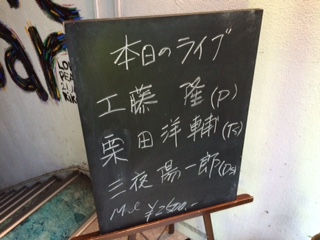 本日のライブ
工藤 隆(P)
栗田洋輔(Ts)
三夜陽一郎(Ds)
M.C ¥2500.-